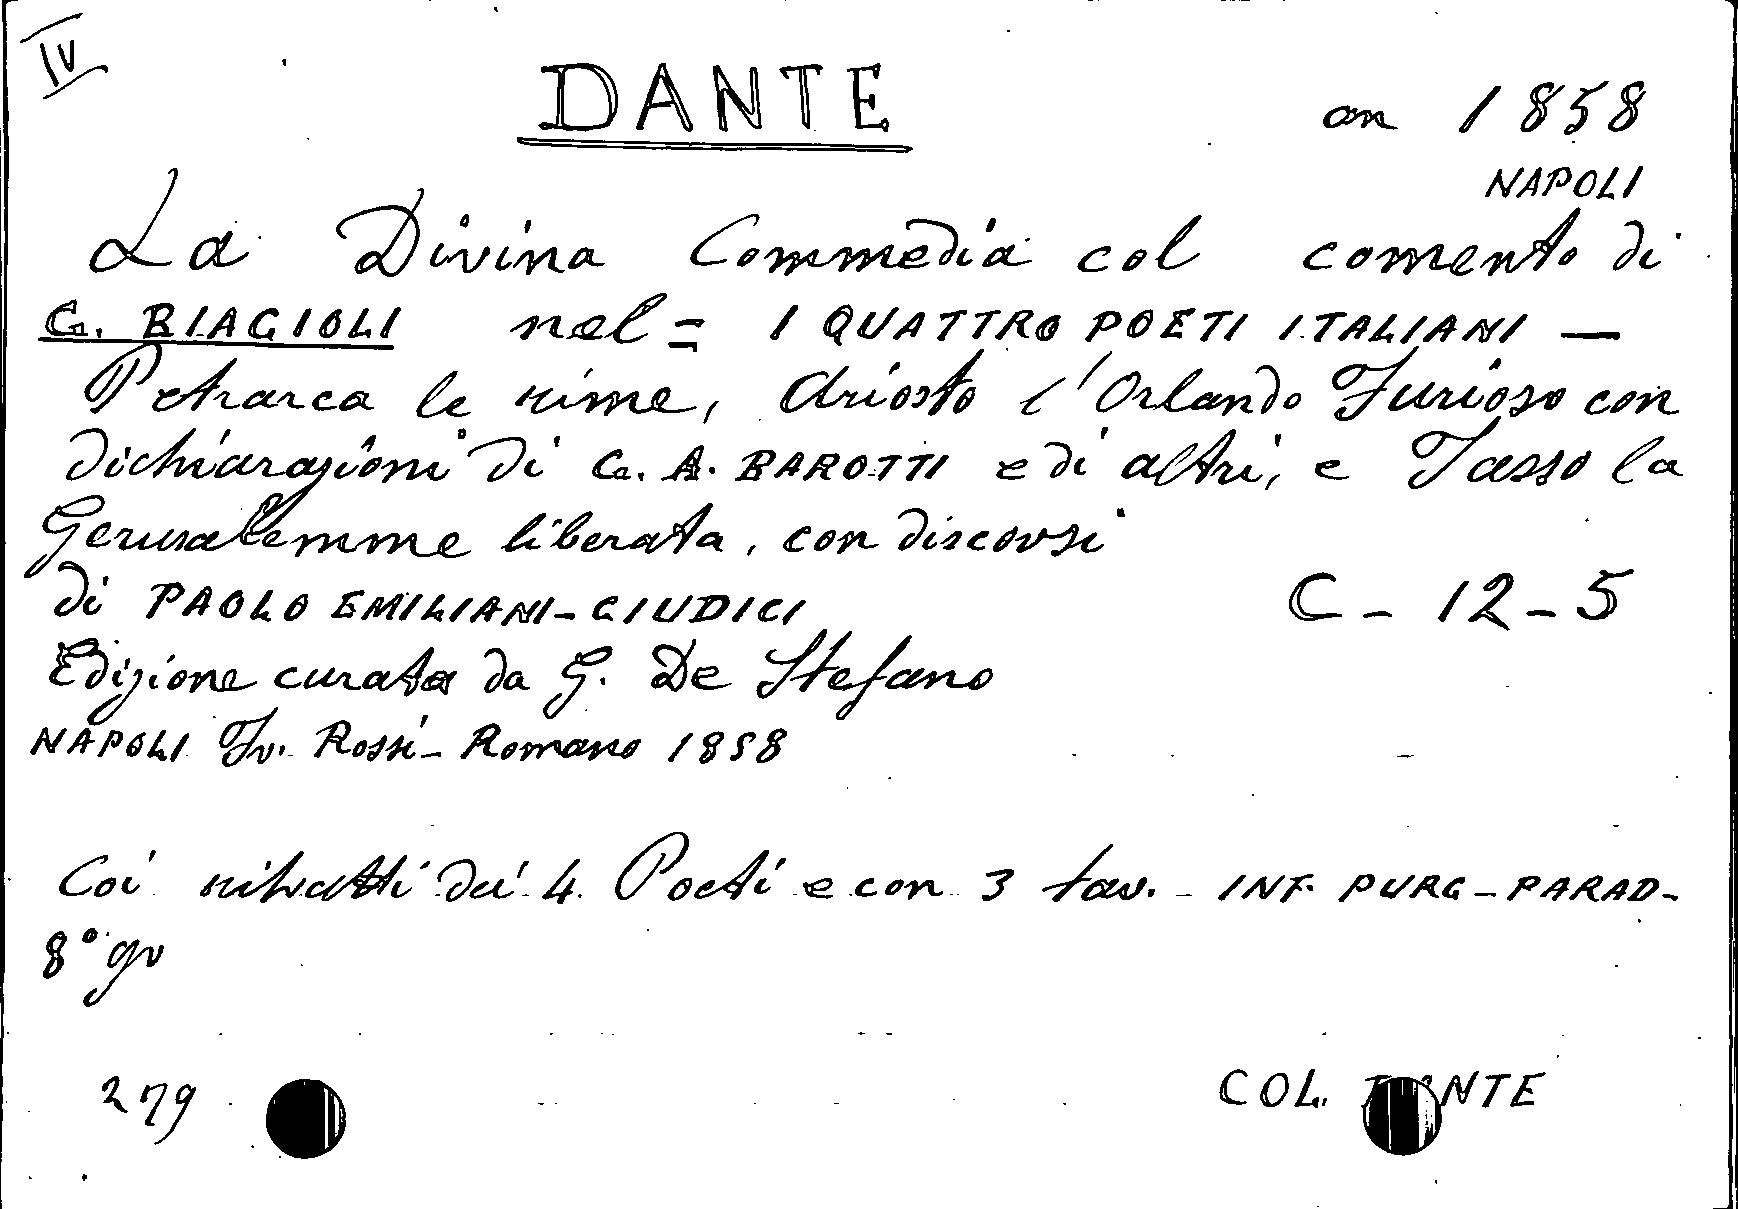 IV
DANTE
an 1858
NAPOLI
La Divina Commedia col comento di
G. BIAGIOLI nel = I QUATTRO POETI ITALIANI —
Petrarca le rime, Ariosto l'Orlando Furioso con
dichiarazioni di G. A. BAROTTI e di altri, e Tasso la
Gerusalemme liberata, con discorsi
di PAOLO EMILIANI-GIUDICI
C - 12 - 5
Edizione curata da G. De Stefano
NAPOLI Fr. Rossi-Romano 1858
Coi ritratti dei 4 Poeti e con 3 tav. - INF. PURG - PARAD-
8° gr
279
COL. DANTE